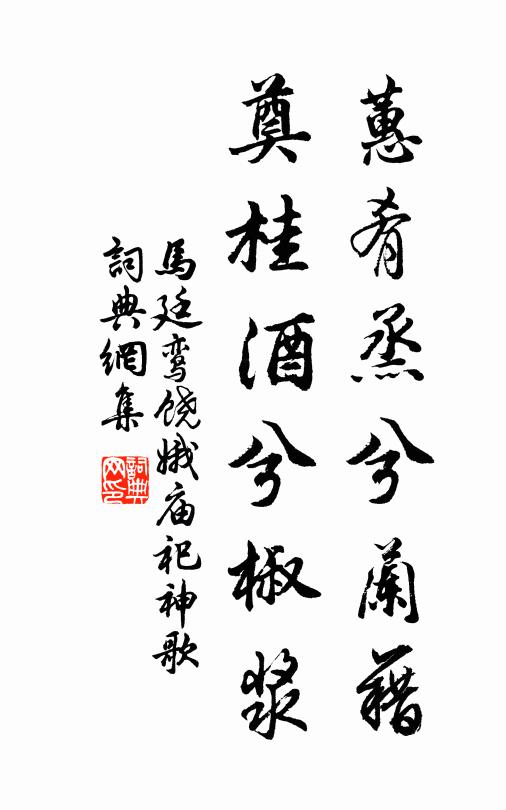 蕙肴烝兮蘭藉
奠桂酒兮椒漿
馬廷鸾饶娥庙祀神歌
詞典網集
詞典
网印